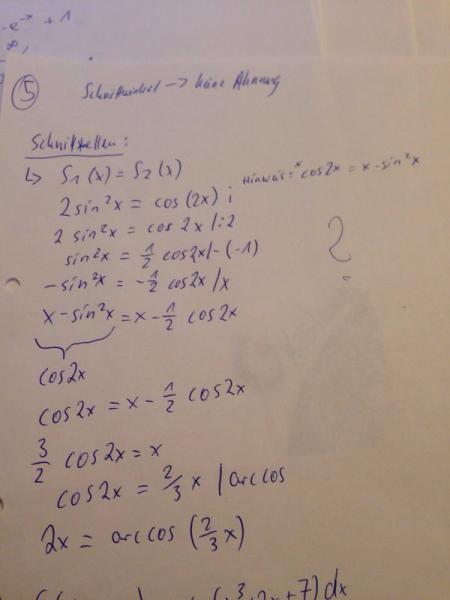 -e⁻ˣ + 1
∞,
⑤ Schnittwinkel → keine Ahnung
Schnittstellen:
↳ S₁(x) = S₂(x)
Hinweis: * cos2x = x - sin²x
2sin²x = cos (2x) ;
2 sin²x = cos 2x /:2
sin²x = 1/2 cos2x /·(-1)
-sin²x = -1/2 cos2x /x
x - sin²x = x - 1/2 cos2x
?
cos2x
cos2x = x - 1/2 cos2x
3/2 cos2x = x
cos2x = 2/3 x | arccos
2x = arccos (2/3 x)
3 2x + 7) dx